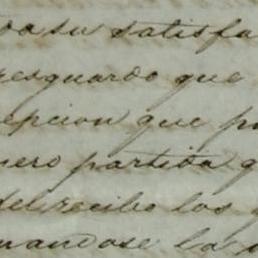 da su satisfa
resguardo que
epcion que p
nero partida q
del recibo los q
nandose la